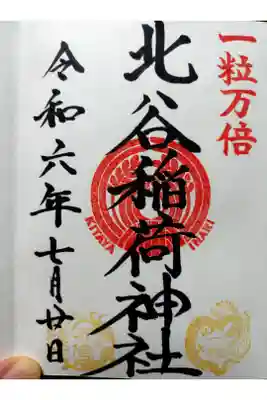 一粒万倍
北谷稲荷神社
KITAYA INARI
令和六年七月廿日